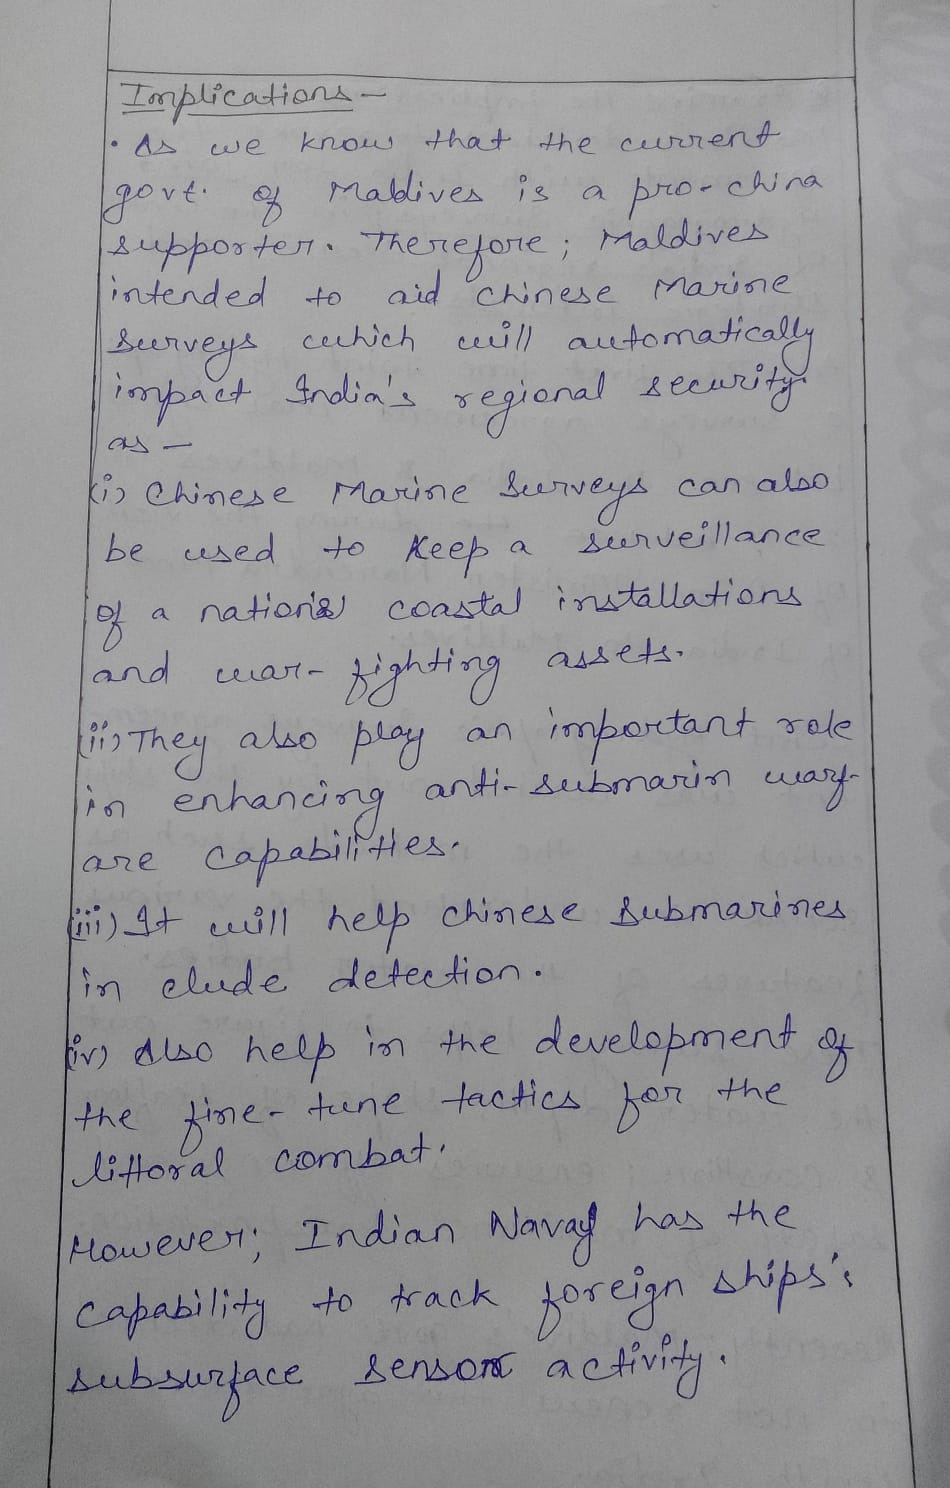 Implications -
• As we know that the current
govt. of Maldives is a pro-china
supporter. Therefore; Maldives
intended to aid Chinese Marine
Surveys which will automatically
impact India's regional security
as -
(i) Chinese Marine Surveys can also
be used to Keep a surveillance
of a nation's coastal installations
and war-fighting assets.
(ii) They also play an important role
in enhancing anti-submarin warf-
are capabilities.
(iii) It will help chinese submarines
in elude detection.
(iv) Also help in the development of
the fine-tune tactics for the
littoral combat.
However; Indian Navay has the
capability to track foreign ships's
subsurface sensor activity.